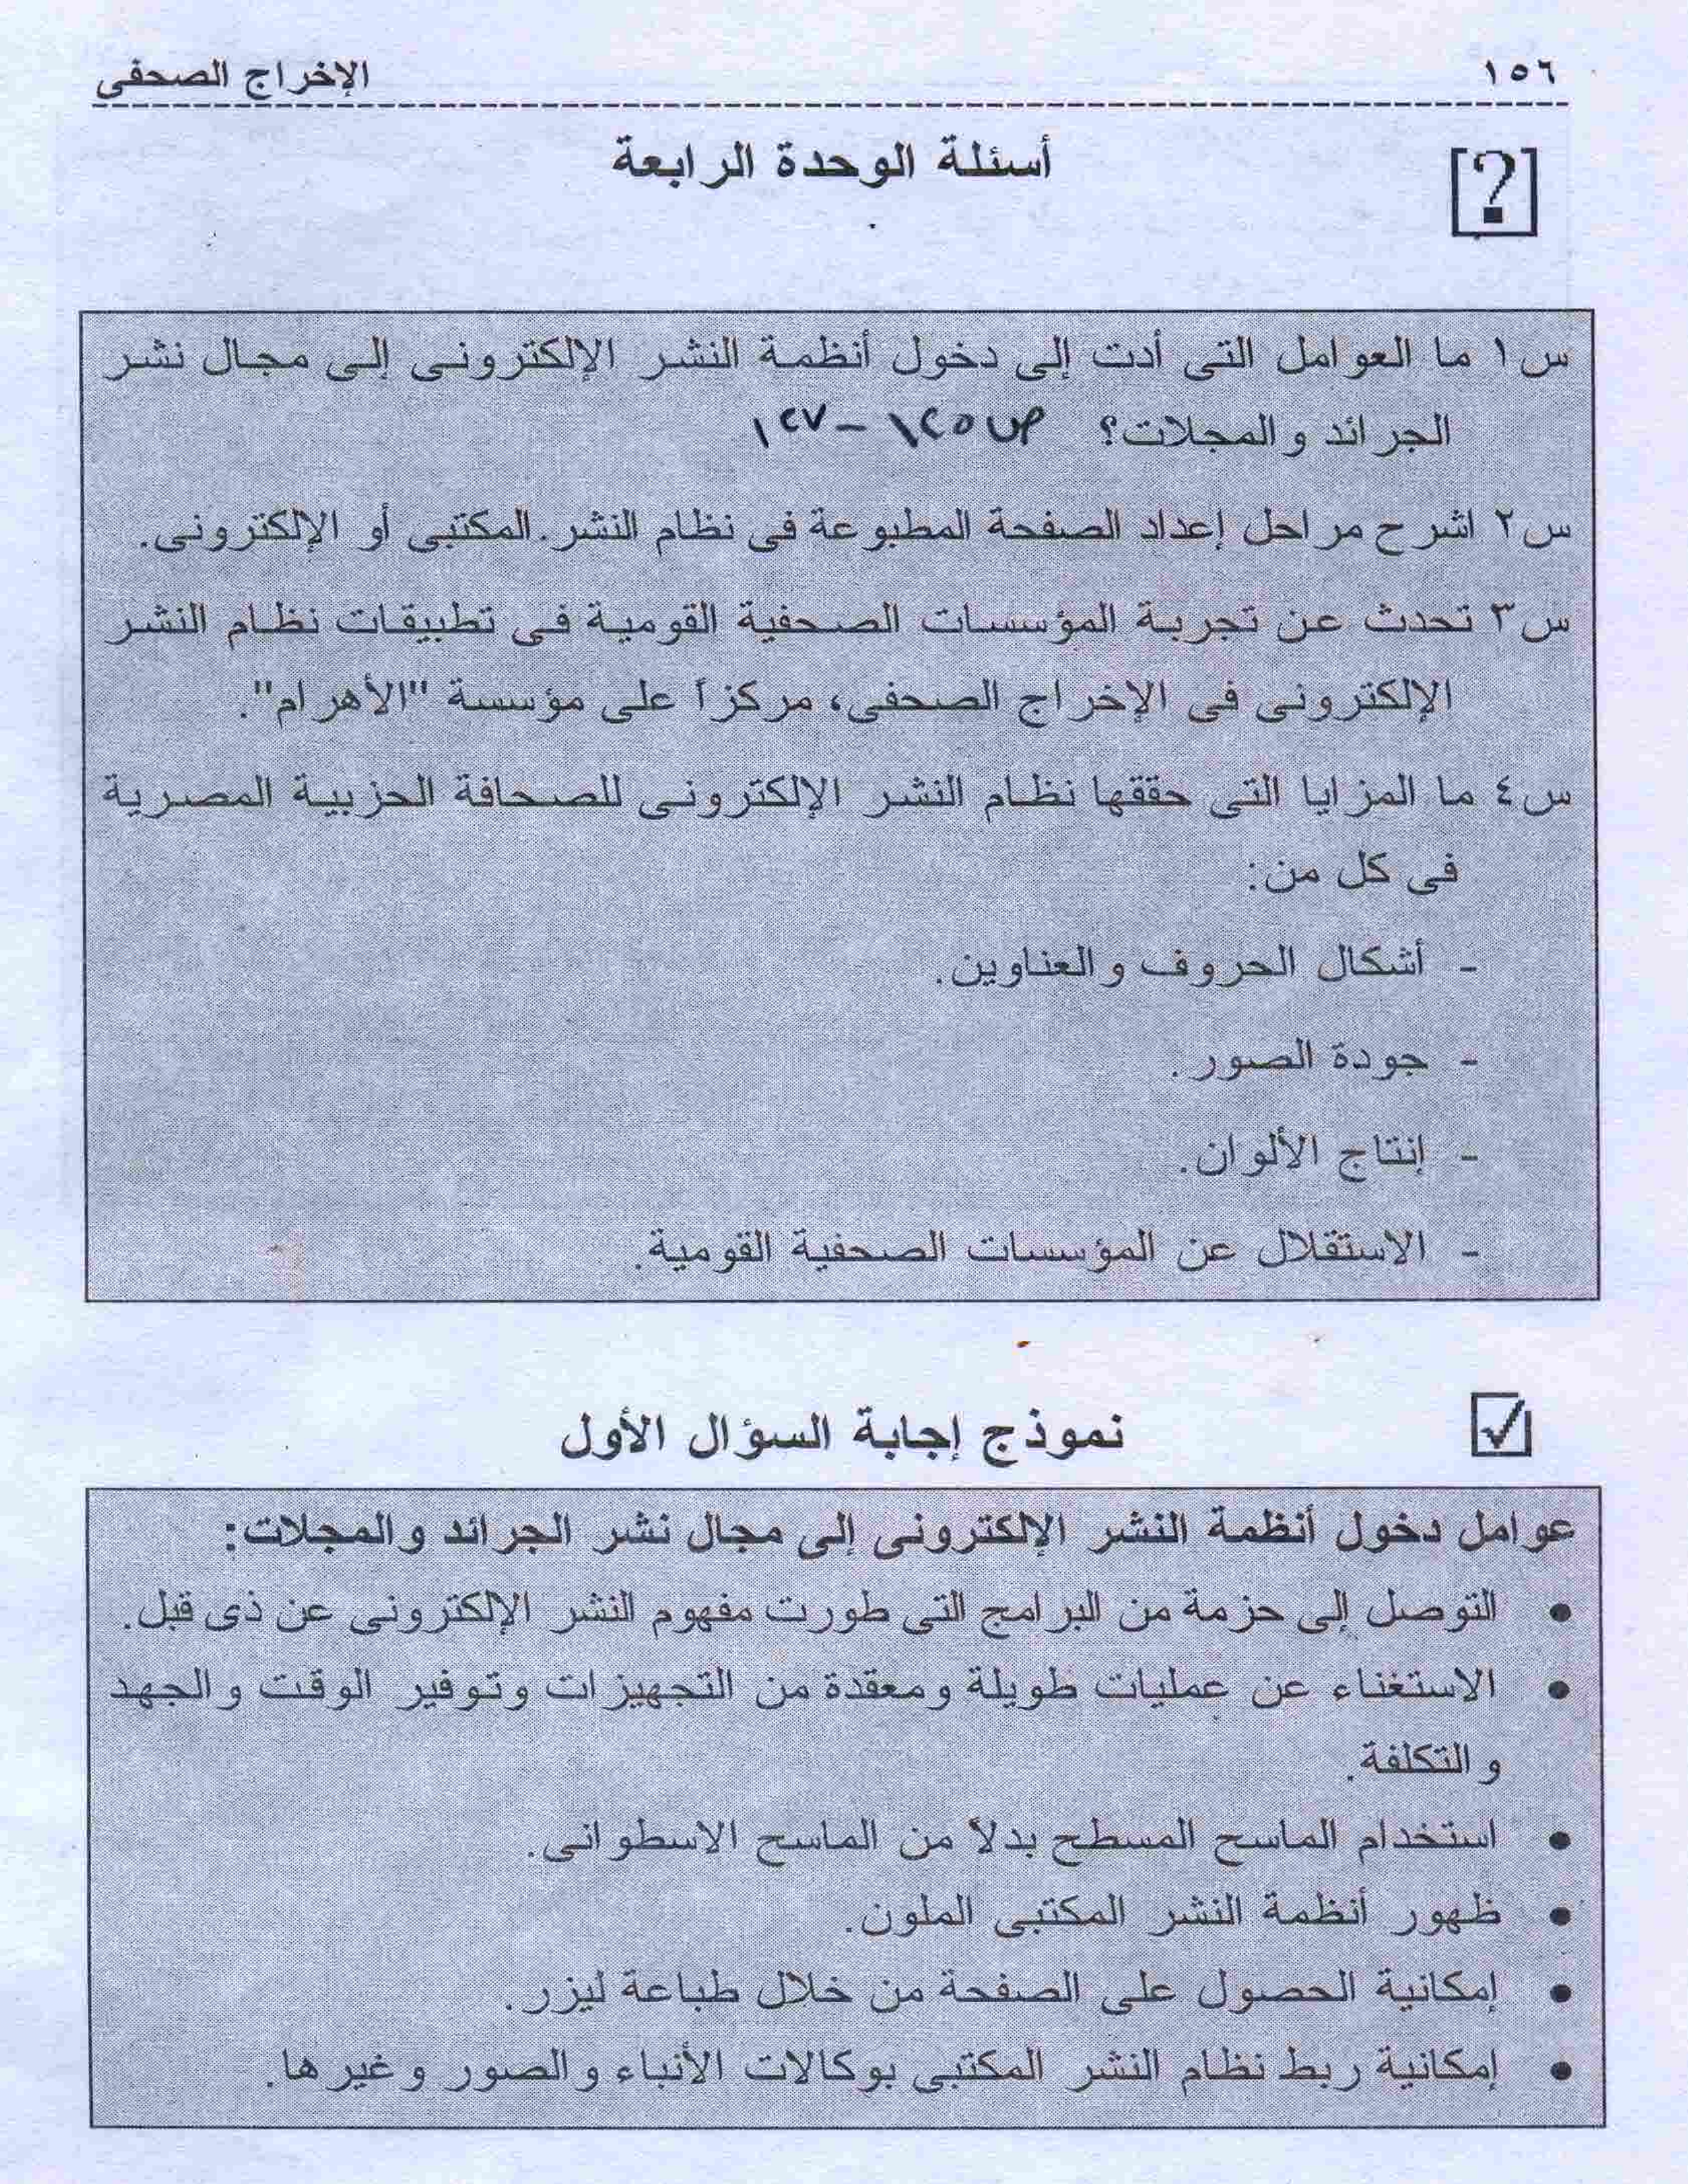 ١٥٦
الإخراج الصحفى
أسئلة الوحدة الرابعة
[?]
س١ ما العوامل التى أدت إلى دخول أنظمة النشر الإلكترونى إلى مجال نشر
الجرائد والمجلات؟ ص ١٢٥ – ١٢٧
س٢ اشرح مراحل إعداد الصفحة المطبوعة فى نظام النشر.المكتبى أو الإلكترونى.
س٣ تحدث عن تجربة المؤسسات الصحفية القومية فى تطبيقات نظام النشر
الإلكترونى فى الإخراج الصحفى، مركزاً على مؤسسة "الأهرام".
س٤ ما المزايا التى حققها نظام النشر الإلكترونى للصحافة الحزبية المصرية
فى كل من:
- أشكال الحروف والعناوين.
- جودة الصور.
- إنتاج الألوان.
- الاستقلال عن المؤسسات الصحفية القومية.
نموذج إجابة السؤال الأول
عوامل دخول أنظمة النشر الإلكترونى إلى مجال نشر الجرائد والمجلات:
• التوصل إلى حزمة من البرامج التى طورت مفهوم النشر الإلكترونى عن ذى قبل.
• الاستغناء عن عمليات طويلة ومعقدة من التجهيزات وتوفير الوقت والجهد
والتكلفة.
• استخدام الماسح المسطح بدلاً من الماسح الاسطوانى.
• ظهور أنظمة النشر المكتبى الملون.
• إمكانية الحصول على الصفحة من خلال طباعة ليزر.
• إمكانية ربط نظام النشر المكتبى بوكالات الأنباء والصور وغيرها.